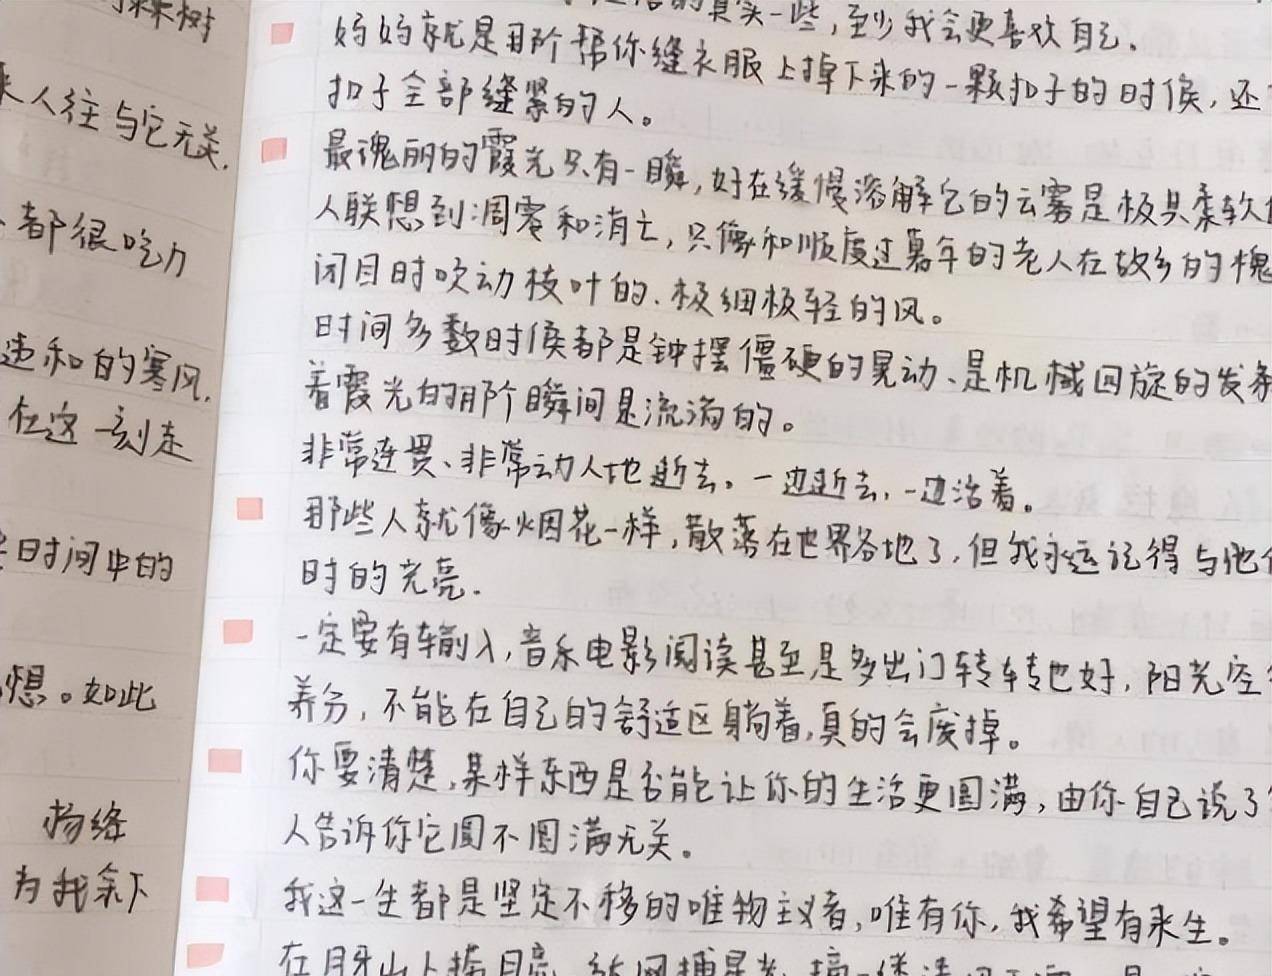 树
来人往与它无关.
都很吃力
违和的寒风.
在这一刻走
日时间中的
想。如此
杨绛
为我余下
的真实一些,至少我会更喜欢自己.
妈妈就是那个帮你缝衣服上掉下来的一颗扣子的时候,还
扣子全部缝紧的人。
最瑰丽的霞光只有一瞬,好在缓慢溶解它的云雾是极具柔软
人联想到凋零和消亡,只像和顺度过暮年的老人在故乡的槐
闭目时吹动枝叶的、极细极轻的风。
时间多数时候都是钟摆僵硬的晃动、是机械回旋的发条
着霞光的那个瞬间是流淌的。
非常连贯、非常动人地逝去。一边逝去,一边活着。
那些人就像烟花一样,散落在世界各地了,但我永远记得与他
时的光亮.
一定要有输入,音乐电影阅读甚至是多出门转转也好,阳光空
养分,不能在自己的舒适区躺着,真的会废掉。
你要清楚,某样东西是否能让你的生活更圆满,由你自己说了
人告诉你它圆不圆满无关。
我这一生都是坚定不移的唯物主义者,唯有你,我希望有来生。
在月牙山上捞月亮